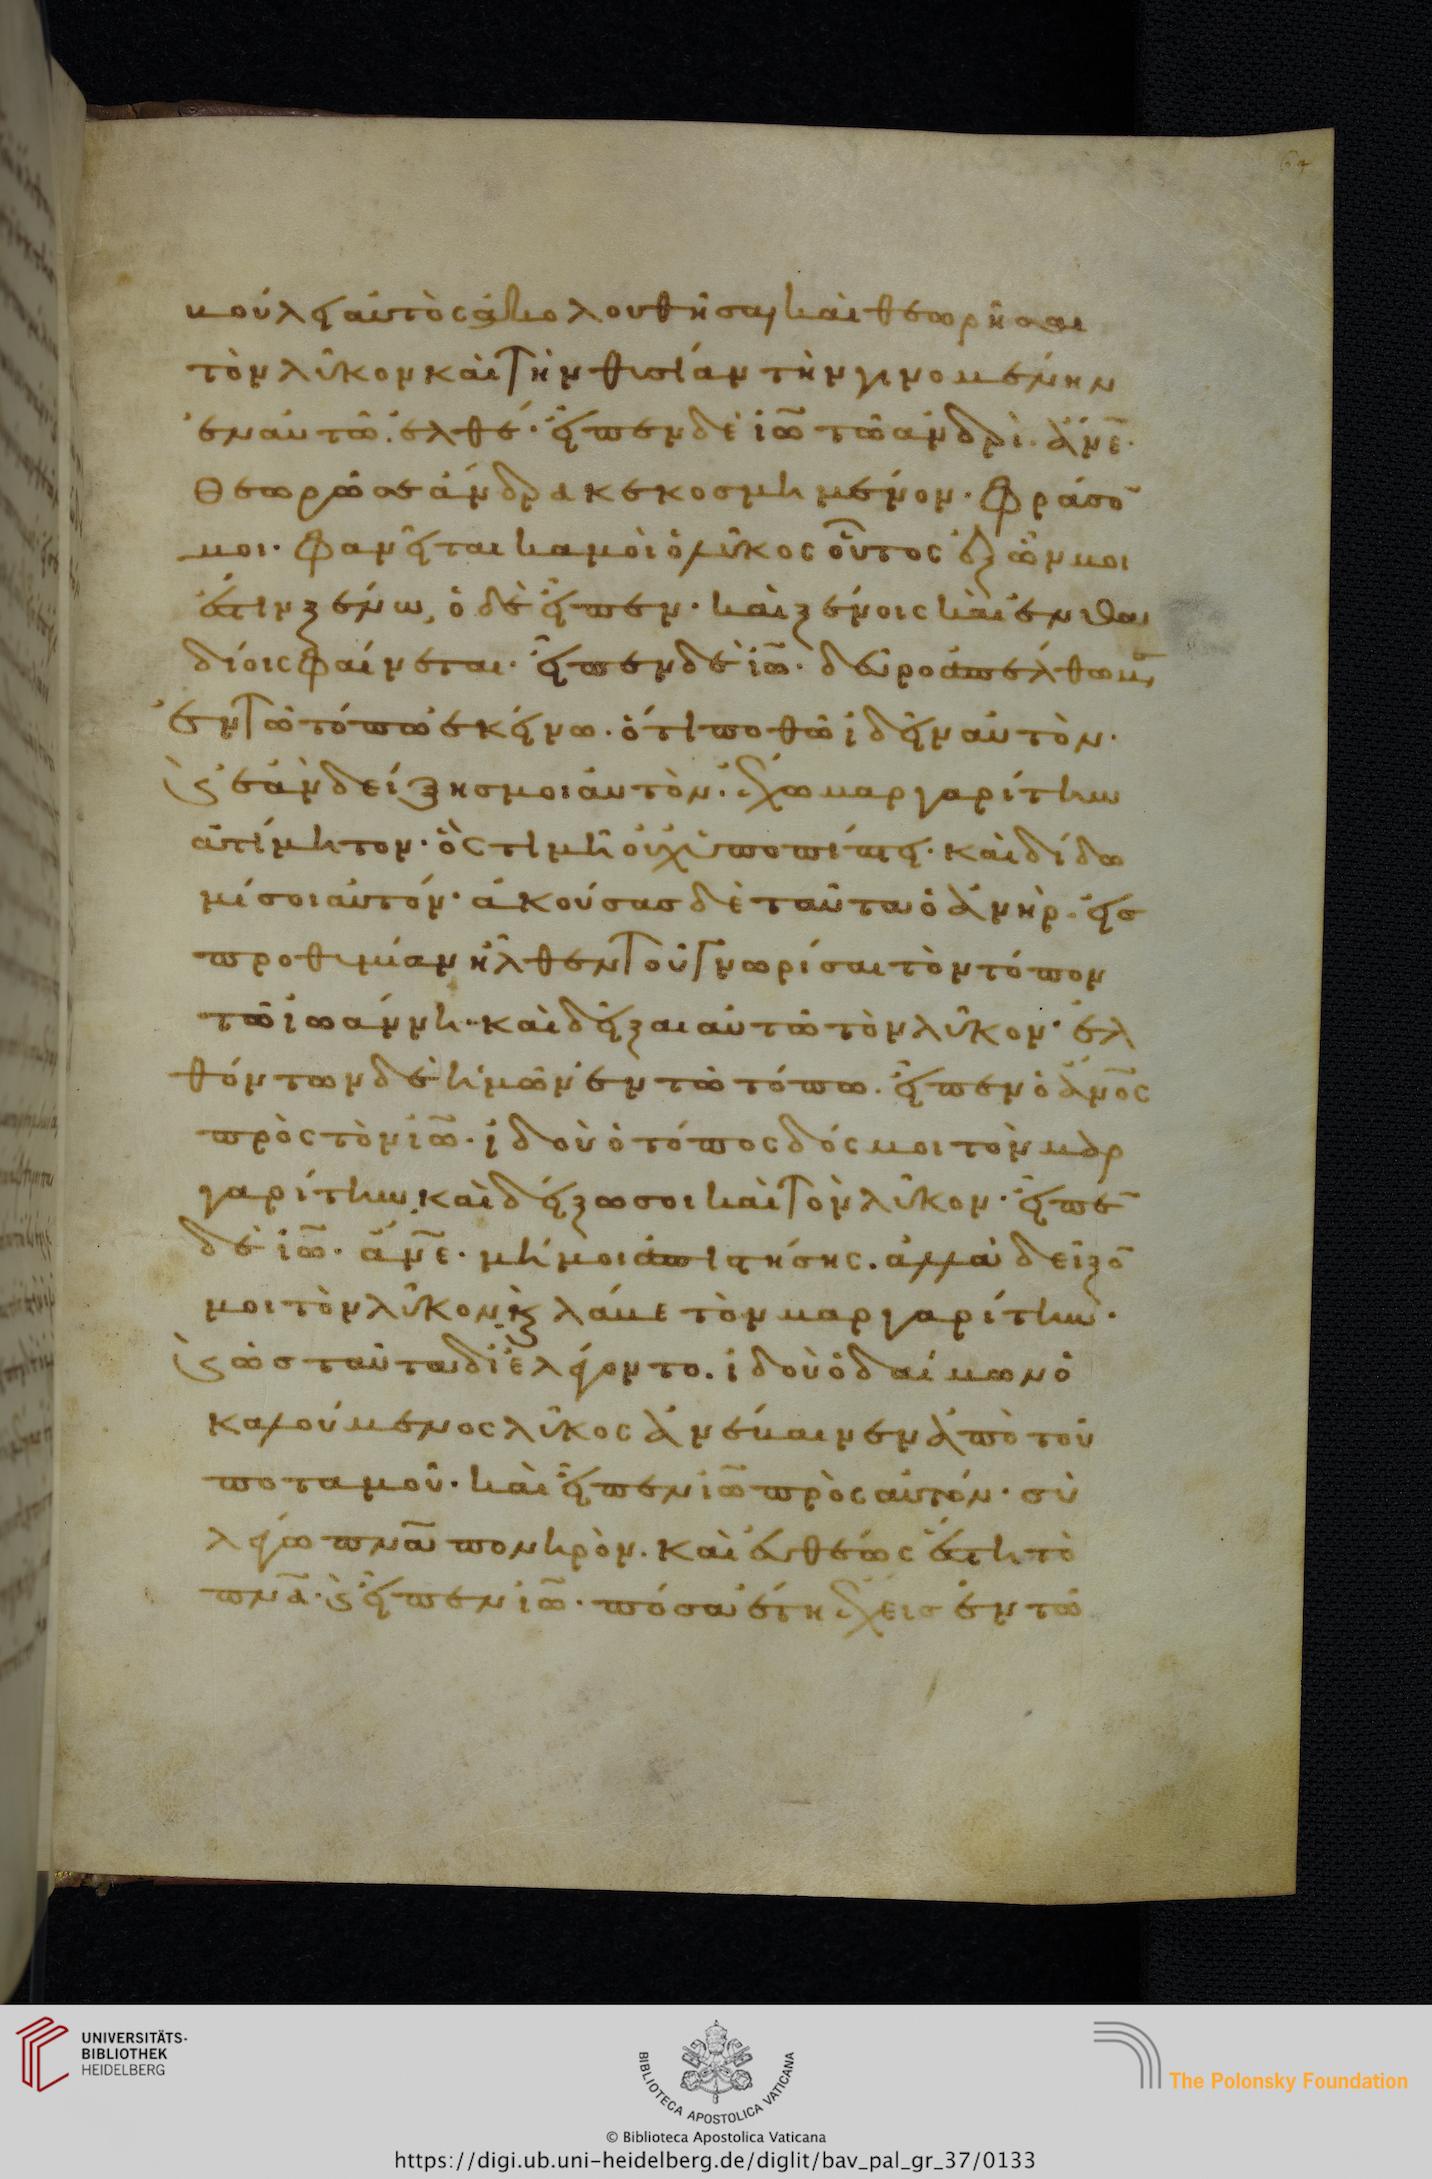 64
κούλει αὐτὸς ἀκολουθῆσαι καὶ θεωρῆσαι
τὸν λῦκον καὶ τὴν θυσίαν τὴν γινομένην
ἐν αὐτῶ. ἐλθέ· εἶπεν δὲ ἰω̅ τῶ ἀνδρὶ. ἄνε̅·
Θεωρῶ σε ἄνδρα κεκοσμημένον· φράσο̅
μοι· φανεῖται καμοὶ ὁ λῦκος οὗτος
ἐστιν ξένω, ὁ δὲ εἶπεν· καὶ ξένοις καὶ ἐνθα
δίοις φαίνεται· εἶπεν δὲ ἰω̅· δεῦρο ἀπέλθωμ
ἐν τῶ τόπω ἐκείνω. ὅτι ποθῶ ἰδεῖν αὐτὸν·
ϗ ἐὰν δείξησ μοι αὐτὸν. ἔχω μαργαρίτην
ἀτίμητον· ὃς τιμῆ οὐχ ὑποπίπτει· καὶ δίδω
μί σοι αὐτόν· ἀκούσασ δὲ ταῦτα ὁ ἀνὴρ. εἰσ
προθυμίαν ἦλθεν τοῦ γνωρίσαι τὸν τόπον
τῶ ἰωάννη· καὶ δεῖξαι αὐτῶ τὸν λῦκον· ἐλ
θόντων δὲ ἡμῶν ἐν τῶ τόπω. εἶπεν ὁ ἄνο̅ς
πρὸς τὸν ἰω̅· ἰδοὺ ὁ τόπος δός μοι τὸν μαρ
γαρίτην, καὶ δείξω σοι καὶ τὸν λῦκον· εἶπε̅
δὲ ἰω̅· ἄνε̅· μή μοι ἀπιστήσης. ἀλλὰ δεῖξο̅
μοι τὸν λῦκον ϗ λάμε τὸν μαργαρίτην·
ϗ ὡσ ταῦτα διελέγοντο. ἰδοὺ ὁ δαίμων ὁ
καλούμενος λῦκος ἀνέμαινεν ἀπὸ τοῦ
ποταμοῦ· καὶ εἶπεν ἰω̅ πρὸς αὐτόν· σὺ
λέγω πνα̅ πονηρὸν. καὶ εὐθέως ἔστη τὸ
πνα̅· ϗ εἶπεν ἰω̅· πόσα ἔτη ἔχεισ ἐν τῶ
UNIVERSITÄTS-
BIBLIOTHEK
HEIDELBERG
BIBLIOTECA APOSTOLICA VATICANA
The Polonsky Foundation
© Biblioteca Apostolica Vaticana
https://digi.ub.uni-heidelberg.de/diglit/bav_pal_gr_37/0133